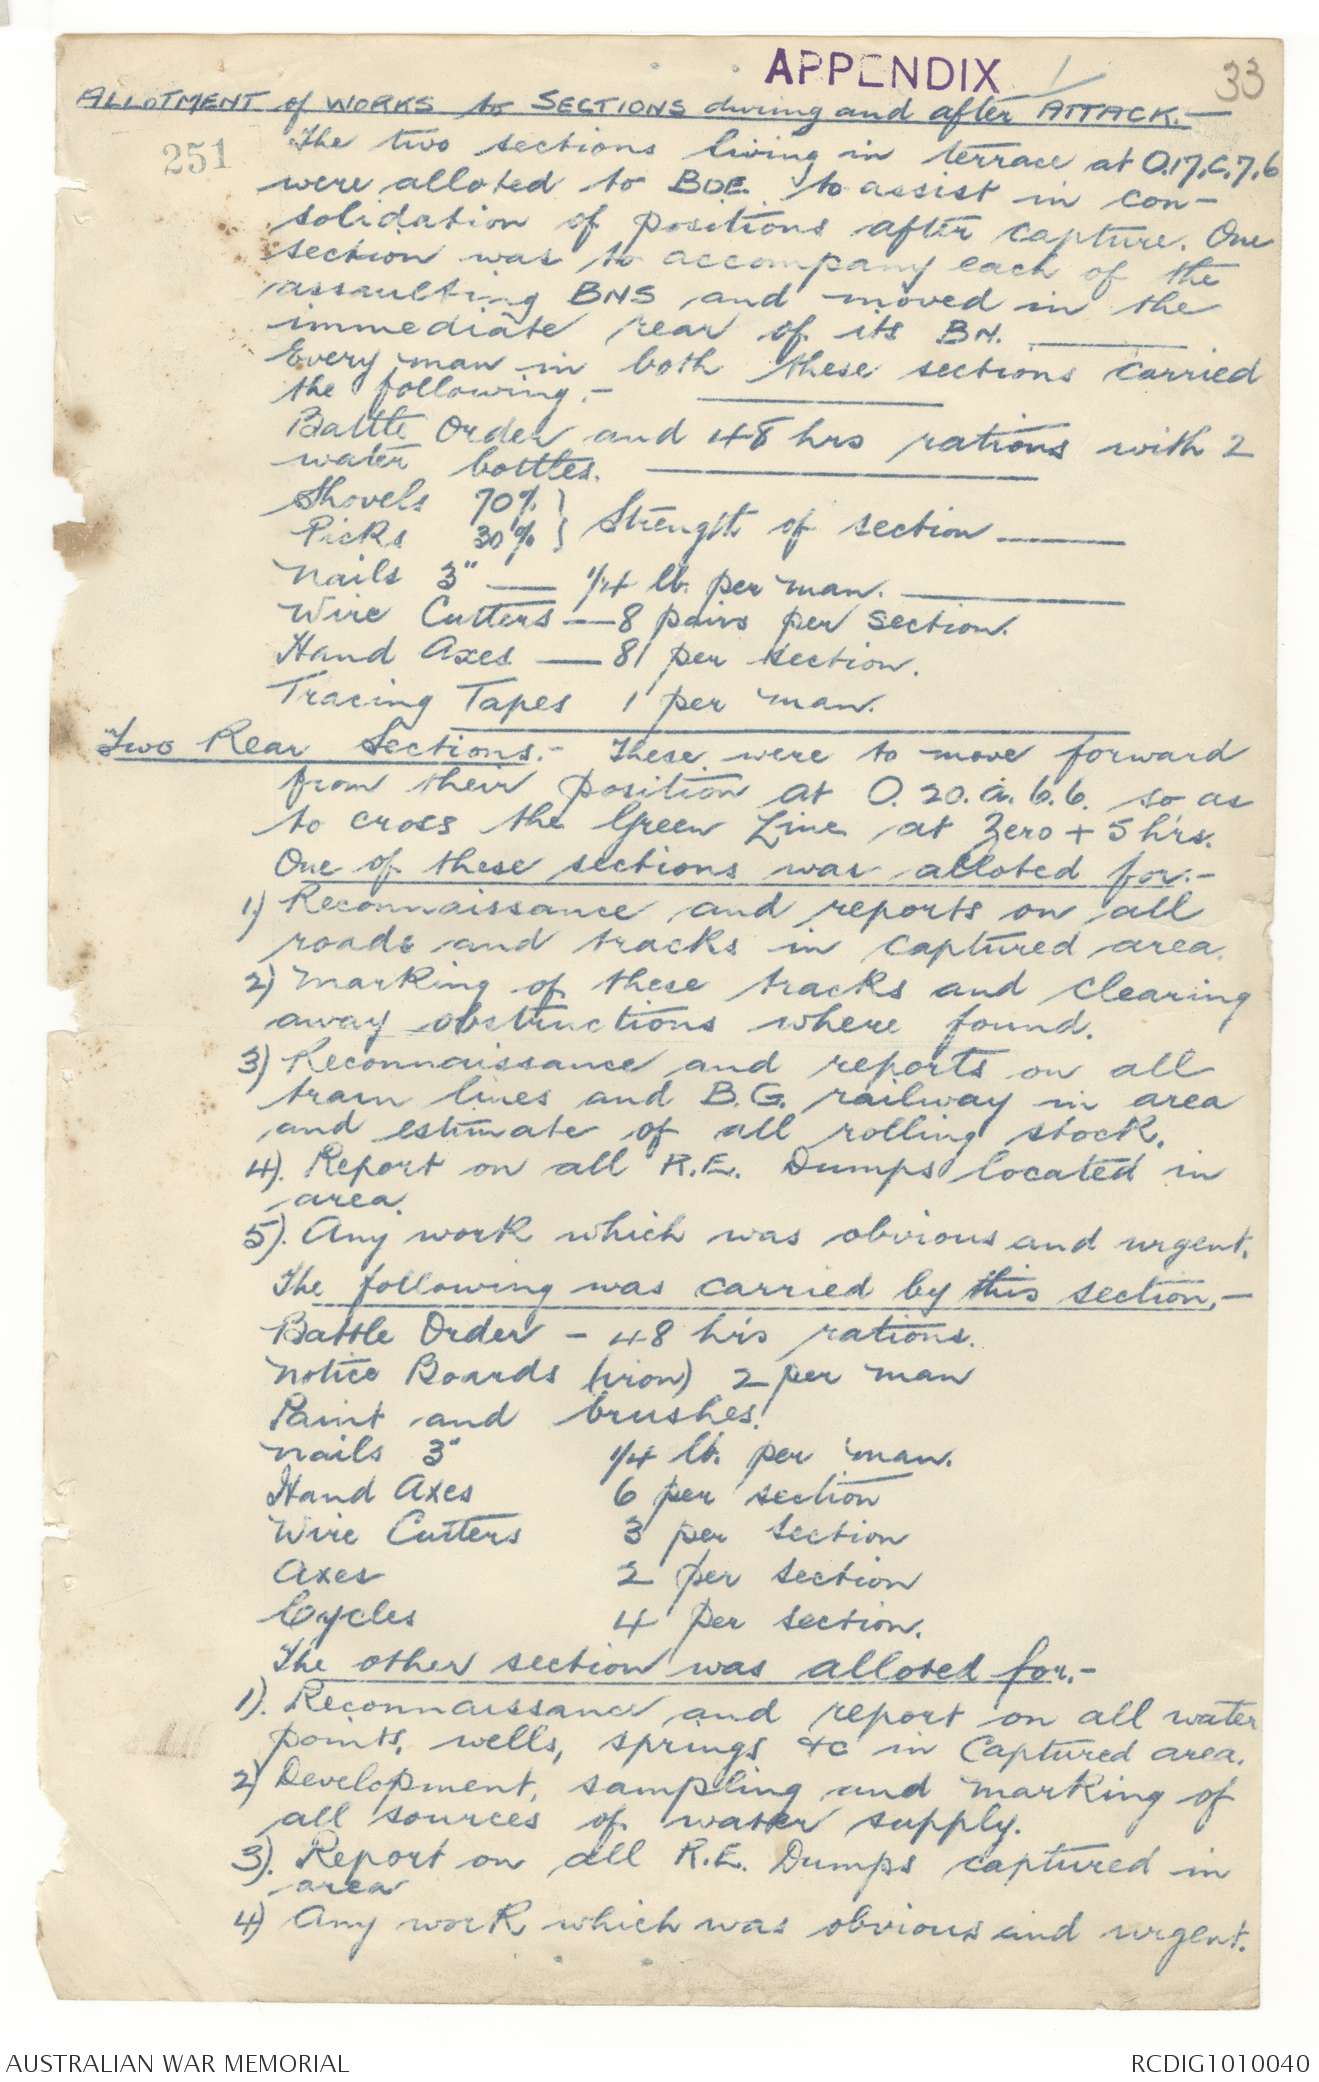 APPENDIX 1
33
ALLOTMENT of WORKS to SECTIONS during and after ATTACK.—
251
The two sections living in terrace at O.17.C.7.6
were alloted to BDE. to assist in con-
solidation of positions after capture. One
section was to accompany each of the
assaulting BNS and moved in the
immediate rear of its BN. ———
Every man in both these sections carried
the following.— ———
Battle Order and 48 hrs rations with 2
water bottles. ———
Shovels 70% }
Picks 30% } Strength of section ———
Nails 3" — 1/4 lb. per man. ———
Wire Cutters — 8 pairs per section.
Hand Axes — 8 per section.
Tracing Tapes 1 per man.
Two Rear Sections.— These were to move forward
from their position at O.20.a.6.6. so as
to cross the Green Line at Zero + 5 hrs.
One of these sections was alloted for:—
1) Reconnaissance and reports on all
roads and tracks in captured area.
2) Marking of these tracks and clearing
away obstructions where found.
3) Reconnaissance and reports on all
tram lines and B.G. railway in area
and estimate of all rolling stock.
4). Report on all R.E. Dumps located in
area.
5). Any work which was obvious and urgent.
The following was carried by this section,—
Battle Order — 48 hrs rations.
Notice Boards (iron) 2 per man
Paint and brushes.
Nails 3" 1/4 lb. per man.
Hand Axes 6 per section
Wire Cutters 3 per section
Axes 2 per section
Cycles 4 per section.
The other section was alloted for,—
1). Reconnaissance and report on all water
points, wells, springs &c in Captured area.
2) Development, sampling and marking of
all sources of water supply.
3). Report on all R.E. Dumps captured in
area
4) Any work which was obvious and urgent.
AUSTRALIAN WAR MEMORIAL
RCDIG1010040